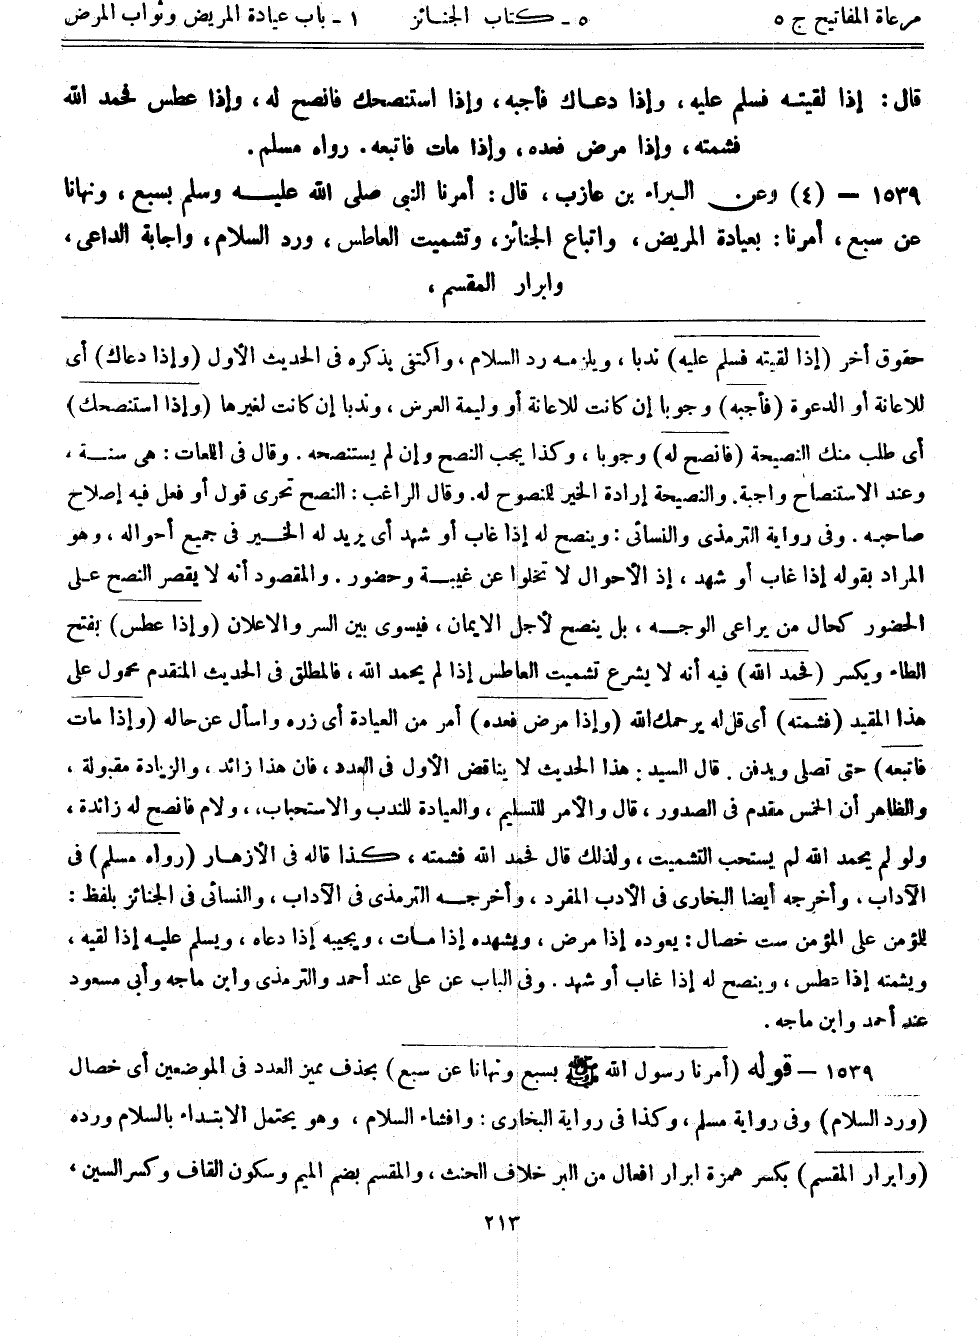 مرعاة المفاتيح ج ٥ ٥ ـ كتاب الجنائز ١ ـ باب عيادة المريض وثواب المرض
قال: إذا لقيته فسلم عليه، وإذا دعاك فأجبه، وإذا استنصحك فانصح له، وإذا عطس فحمد الله
فشمته، وإذا مرض فعده، وإذا مات فاتبعه. رواه مسلم.
١٥٣٩ – (٤) وعن البراء بن عازب، قال: أمرنا النبي صلى الله عليه وسلم بسبع، ونهانا
عن سبع، أمرنا: بعيادة المريض، واتباع الجنائز، وتشميت العاطس، ورد السلام، واجابة الداعى،
وابرار المقسم،
حقوق أخر (إذا لقيته فسلم عليه) ندبا، ويلزمه رد السلام، واكتفى بذكره فى الحديث الأول (وإذا دعاك) أى
للاعانة أو الدعوة (فأجبه) وجوبا إن كانت للاعانة أو وليمة العرس، وندبا إن كانت لغيرها (وإذا استنصحك)
أى طلب منك النصيحة (فانصح له) وجوبا، وكذا يجب النصح وإن لم يستنصحه. وقال فى اللعات: هى سنة،
وعند الاستنصاح واجبة. والنصيحة إرادة الخير للنصوح له. وقال الراغب: النصح تحرى قول أو فعل فيه إصلاح
صاحبه. وفى رواية الترمذى والنسائى: وينصح له إذا غاب أو شهد أى يريد له الخير فى جميع أحواله، وهو
المراد بقوله إذا غاب أو شهد، إذ الأحوال لا تخلوا عن غيبة وحضور. والمقصود أنه لا يقصر النصح على
الحضور كحال من يراعى الوجه، بل ينصح لأجل الايمان، فيسوى بين السر والاعلان (وإذا عطس) بفتح
الطاء ويكسر (فحمد الله) فيه أنه لا يشرع تشميت العاطس إذا لم يحمد الله، فالمطلق فى الحديث المتقدم محمول على
هذا المقيد (فشمته) أى قل له يرحمك الله (وإذا مرض فعده) أمر من العيادة أى زره واسأل عن حاله (وإذا مات
فاتبعه) حتى تصلى ويدفن. قال السيد: هذا الحديث لا يناقض الأول فى العدد، فان هذا زائد، والزيادة مقبولة،
والظاهر أن الخمس مقدم فى الصدور، قال والأمر للتسليم، والعيادة للندب والاستحباب،، ولام فانصح له زائدة،
ولو لم يحمد الله لم يستحب التشميت، ولذلك قال فحمد الله فشمته، كذا قاله فى الأزهار (رواه مسلم) فى
الآداب، وأخرجه أيضا البخارى فى الأدب المفرد، وأخرجه الترمذى فى الآداب، والنسائى فى الجنائز بلفظ:
للؤمن على المؤمن ست خصال: يعوده إذا مرض، ويشهده إذا مات، ويجيبه إذا دعاه، ويسلم عليه إذا لقيه،
ويشمته إذا عطس، وينصح له إذا غاب أو شهد. وفى الباب عن على عند أحمد والترمذى وابن ماجه وأبى مسعود
عند أحمد وابن ماجه.
١٥٣٩ – قوله (أمرنا رسول الله ﷺ بسبع ونهانا عن سبع) بحذف مميز العدد فى الموضعين أى خصال
(ورد السلام) وفى رواية مسلم، وكذا فى رواية البخارى: وافشاء السلام، وهو يحتمل الابتداء بالسلام ورده
(وابرار المقسم) بكسر همزة ابرار افعال من البر خلاف الحنث، والمقسم بضم الميم وسكون القاف وكسر السين،
٢١٣